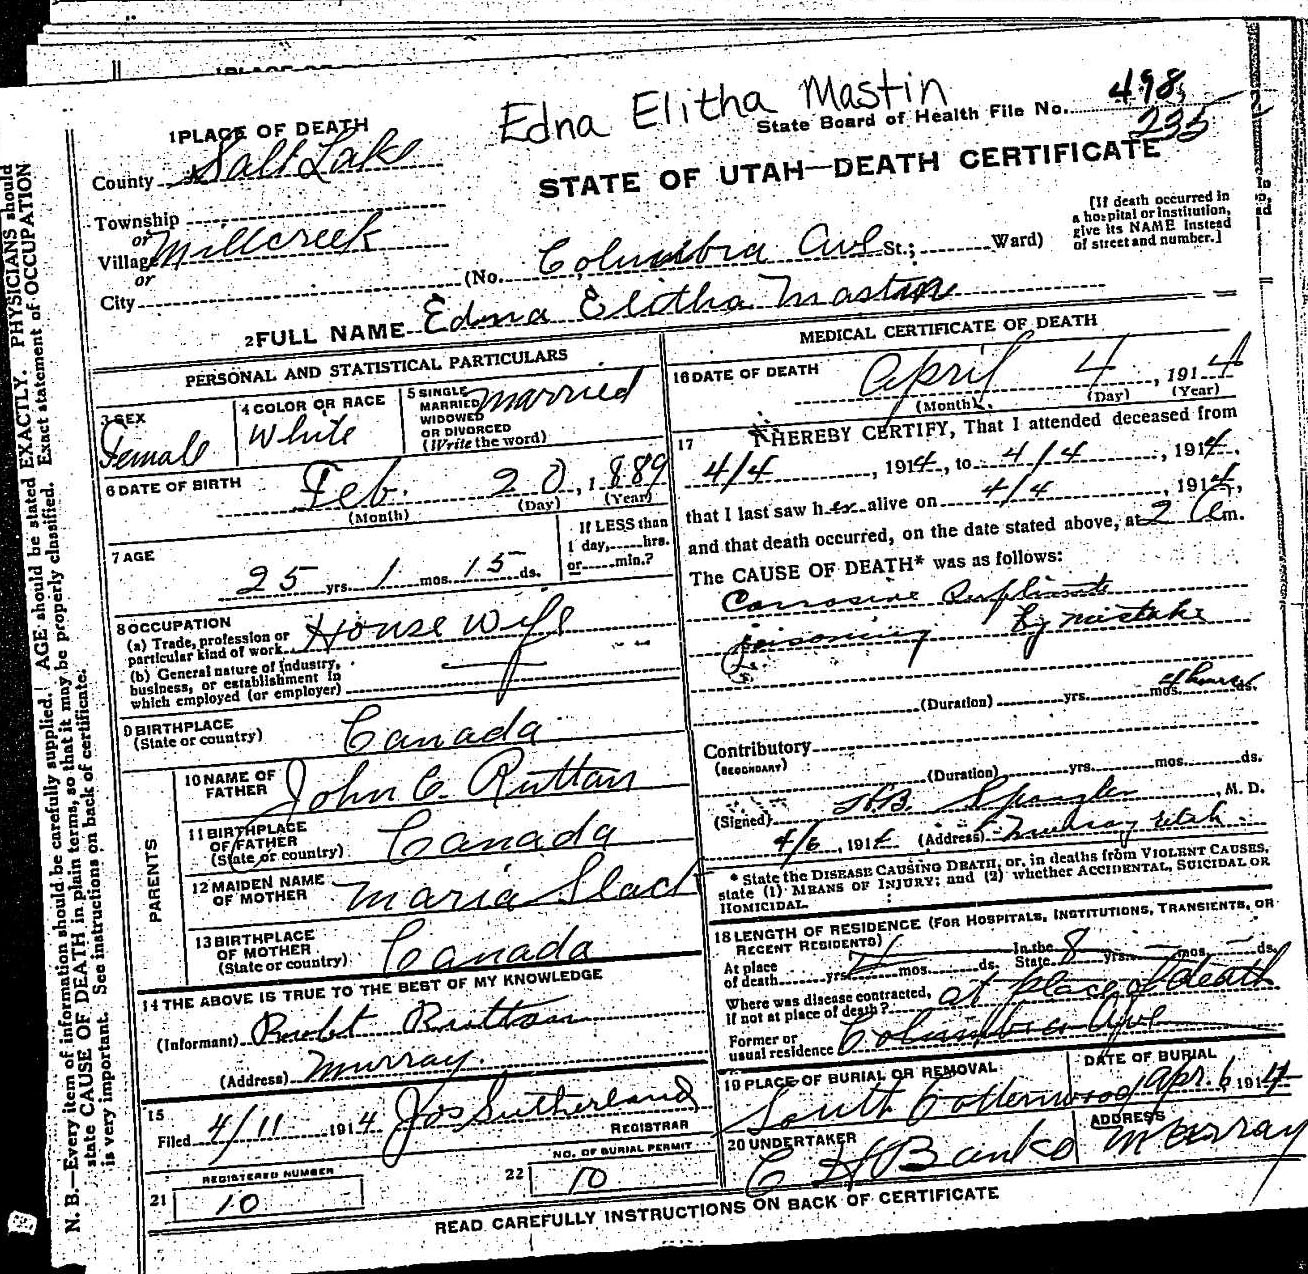 Edna Elitha Mastin
1 PLACE OF DEATH
State Board of Health File No. 498
235
County Salt Lake
STATE OF UTAH—DEATH CERTIFICATE
Township
or
Village Millcreek
or
City
(No. Columbia Ave St.; Ward)
[If death occurred in
a hospital or institution,
give its NAME instead
of street and number.]
2 FULL NAME Edna Elitha Mastin
PERSONAL AND STATISTICAL PARTICULARS
3 SEX
Female
4 COLOR OR RACE
White
5 SINGLE
MARRIED
WIDOWED
OR DIVORCED
(Write the word)
married
6 DATE OF BIRTH
Feb. 20, 1889
(Month) (Day) (Year)
7 AGE
25 yrs. 1 mos. 15 ds.
If LESS than
1 day, hrs.
or min.?
8 OCCUPATION
(a) Trade, profession or
particular kind of work House Wife
(b) General nature of industry,
business, or establishment in
which employed (or employer)
9 BIRTHPLACE
(State or country)
Canada
PARENTS
10 NAME OF
FATHER
John C. Ruttan
11 BIRTHPLACE
OF FATHER
(State or country)
Canada
12 MAIDEN NAME
OF MOTHER
Maria Slack
13 BIRTHPLACE
OF MOTHER
(State or country)
Canada
14 THE ABOVE IS TRUE TO THE BEST OF MY KNOWLEDGE
(Informant) Robt Ruttan
(Address) Murray.
15
Filed 4/11 1914 Jos Sutherland
REGISTRAR
21 REGISTERED NUMBER
10
22 NO. OF BURIAL PERMIT
10
MEDICAL CERTIFICATE OF DEATH
16 DATE OF DEATH
April 4, 1914
(Month) (Day) (Year)
17 I HEREBY CERTIFY, That I attended deceased from
4/4, 1914, to 4/4, 1914,
that I last saw her alive on 4/4, 1914,
and that death occurred, on the date stated above, at 2 a m.
The CAUSE OF DEATH* was as follows:
Corrosive Sublimate
poisoning by mistake
(Duration) yrs. mos. 4 hours ds.
Contributory
(SECONDARY)
(Duration) yrs. mos. ds.
(Signed) H.B. Spangler, M. D.
4/6, 1914 (Address) Murray Utah
* State the DISEASE CAUSING DEATH, or, in deaths from VIOLENT CAUSES,
state (1) MEANS OF INJURY; and (2) whether ACCIDENTAL, SUICIDAL OR
HOMICIDAL.
18 LENGTH OF RESIDENCE (FOR HOSPITALS, INSTITUTIONS, TRANSIENTS, OR
RECENT RESIDENTS)
At place
of death yrs. mos. ds.
In the
State 8 yrs. mos. ds.
Where was disease contracted,
if not at place of death? at place of death
Former or
usual residence Columbia Ave
19 PLACE OF BURIAL OR REMOVAL
South Cottonwood
DATE OF BURIAL
Apr. 6 1914
20 UNDERTAKER
C H Banks
ADDRESS
Murray
READ CAREFULLY INSTRUCTIONS ON BACK OF CERTIFICATE
N. B.—Every item of information should be carefully supplied. AGE should be stated EXACTLY. PHYSICIANS should
state CAUSE OF DEATH in plain terms, so that it may be properly classified. Exact statement of OCCUPATION
is very important. See instructions on back of certificate.